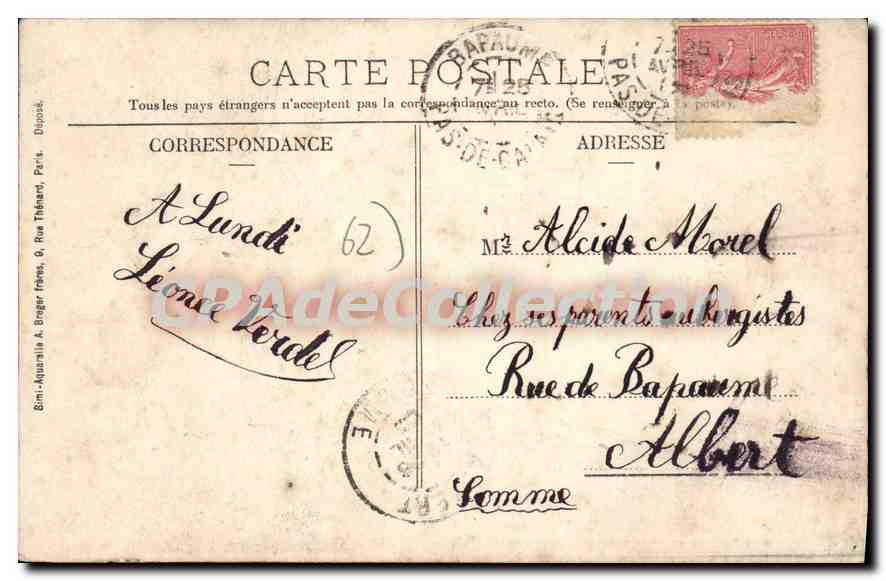 CARTE POSTALE
Tous les pays étrangers n'acceptent pas la correspondance au recto. (Se renseigner à la poste).
CORRESPONDANCE
ADRESSE
BAPAUME
7 25
AVRIL
PAS-DE-CALAIS
7 25
AVRIL
PAS-DE
A Lundi
Léonce Verdel
62)
Mr Alcide Morel
Chez ses parents aubergistes
Rue de Bapaume
Albert
Somme
CPAdeCollection
Simi-Aquarelle A. Breger frères, 9, Rue Thénard, Paris. Déposé.